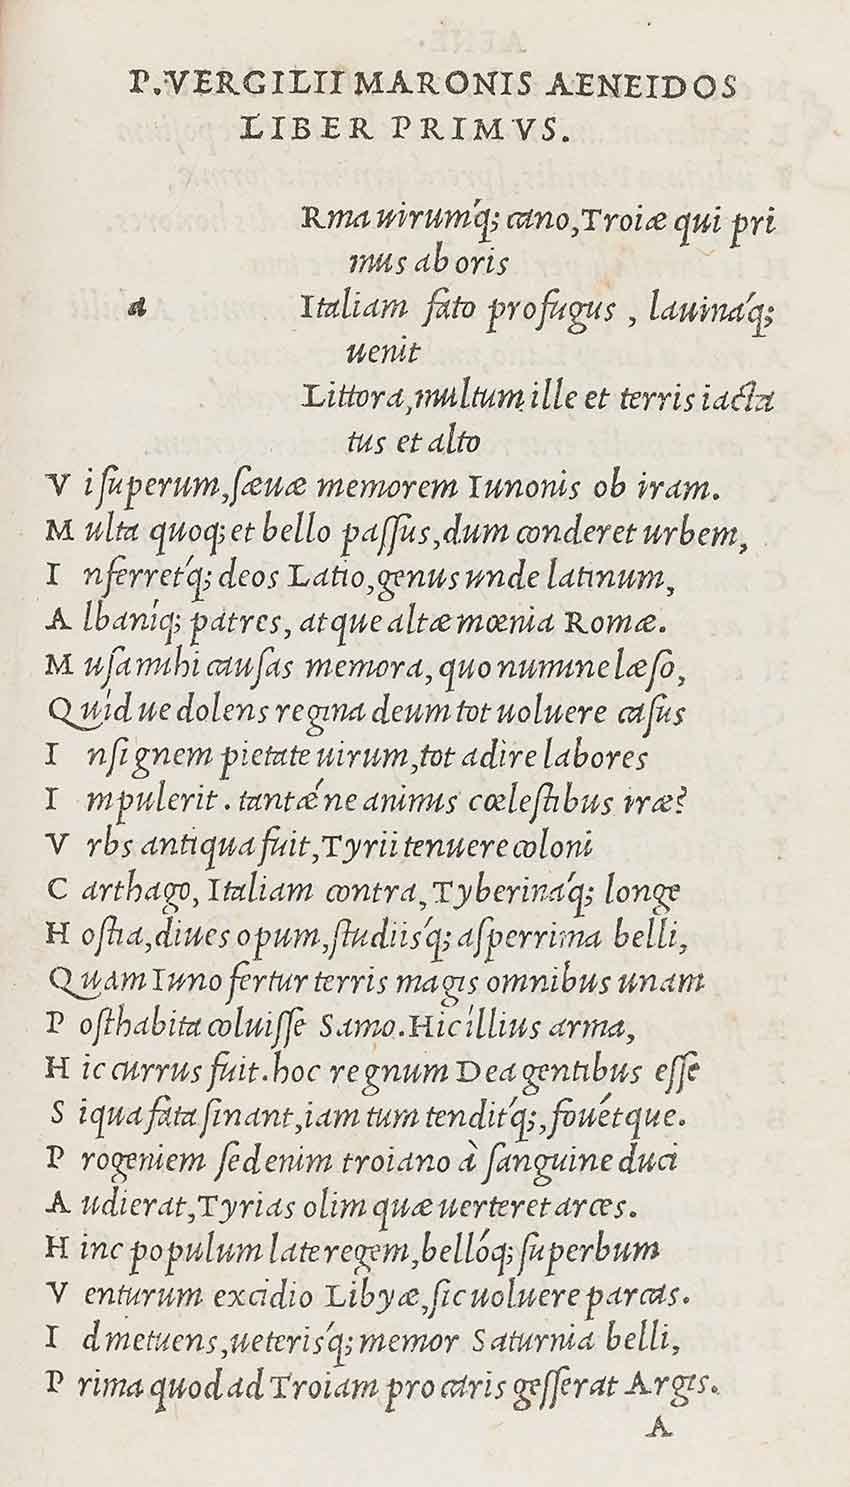 P. VERGILII MARONIS AENEIDOS
LIBER PRIMVS.
Rma uirumq́; cano, Troiæ qui pri
mus ab oris
a Italiam fato profugus, lauinaq́;
uenit
Littora, multum ille et terris iacta
tus et alto
V i ſuperum, ſæuæ memorem Iunonis ob iram.
M ulta quoq; et bello paſſus, dum conderet urbem,
I nferretq́; deos Latio, genus unde latinum,
A lbaniq́; patres, atque altæ mœnia Romæ.
M uſa mihi cauſas memora, quo numine læſo,
Quid ue dolens regina deum tot uoluere caſus
I nſignem pietate uirum, tot adire labores
I mpulerit. tantǽ ne animis cœleſtibus iræ?
V rbs antiqua fuit, Tyrii tenuere coloni
C arthago, Italiam contra, Tyberinaq́; longe
H oſtia, diues opum, ſtudiisq́; aſperrima belli,
Quam Iuno fertur terris magis omnibus unam
P oſthabita coluiſſe Samo. Hic illius arma,
H ic currus fuit. hoc regnum Dea gentibus eſſe
S i qua fata ſinant, iam tum tenditq́;, fouétque.
P rogeniem ſed enim troiano à ſanguine duci
A udierat, Tyrias olim quæ uerteret arces.
H inc populum late regem, bellóq; ſuperbum
V enturum excidio Libyæ, ſic uoluere parcas.
I d metuens, ueterisq́; memor Saturnia belli,
P rima quod ad Troiam pro caris geſſerat Argis.
A